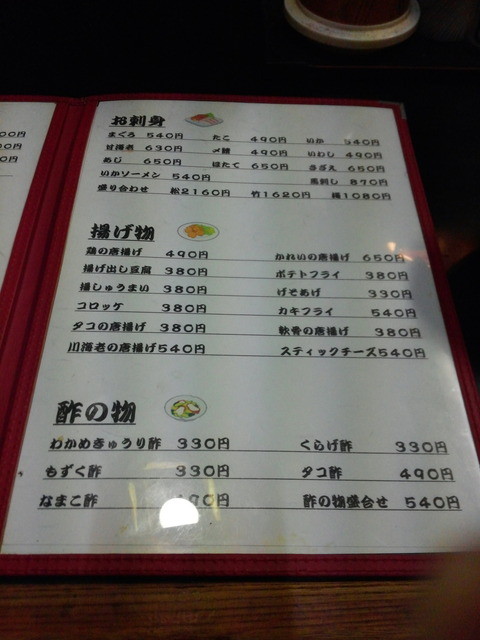 00円
0円
0円
お刺身
まぐろ 540円 たこ 490円 いか 540円
甘海老 630円 〆鯖 490円 いわし 490円
あじ 650円 ほたて 650円 さざえ 650円
いかソーメン 540円 馬刺し 870円
盛り合わせ 松2160円 竹1620円 梅1080円
揚げ物
鶏の唐揚げ 490円 かれいの唐揚げ 650円
揚げ出し豆腐 380円 ポテトフライ 380円
揚しゅうまい 380円 げそあげ 330円
コロッケ 380円 カキフライ 540円
タコの唐揚げ 380円 軟骨の唐揚げ 380円
川海老の唐揚げ540円 スティックチーズ540円
酢の物
わかめきゅうり酢 330円 くらげ酢 330円
もずく酢 330円 タコ酢 490円
なまこ酢 490円 酢の物盛合せ 540円